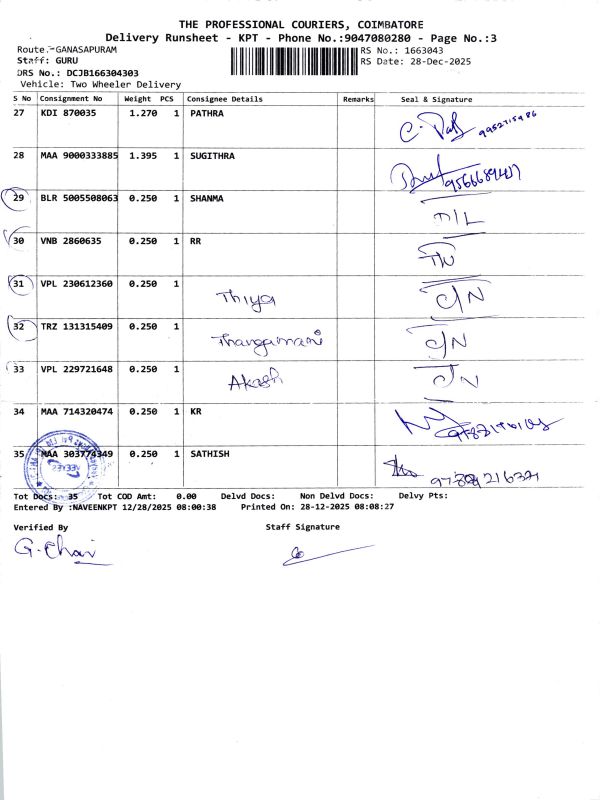 THE PROFESSIONAL COURIERS, COIMBATORE
Delivery Runsheet - KPT - Phone No.:9047080280 - Page No.:3
Route.-GANASAPURAM RS No.: 1663043
Staff: GURU RS Date: 28-Dec-2025
DRS No.: DCJB166304303
Vehicle: Two Wheeler Delivery
S No Consignment No Weight PCS Consignee Details Remarks Seal & Signature
27 KDI 870035 1.270 1 PATHRA
28 MAA 9000333885 1.395 1 SUGITHRA
29 BLR 5005508063 0.250 1 SHANMA D/L
30 VNB 2860635 0.250 1 RR
31 VPL 230612360 0.250 1 Thiya C/N
32 TRZ 131315409 0.250 1 Thangamani C/N
33 VPL 229721648 0.250 1 Akash
34 MAA 714320474 0.250 1 KR
35 MAA 303774349 0.250 1 SATHISH
Tot Docs: 35 Tot COD Amt: 0.00 Delvd Docs: Non Delvd Docs: Delvy Pts:
Entered By :NAVEENKPT 12/28/2025 08:00:38 Printed On: 28-12-2025 08:08:27
Verified By Staff Signature